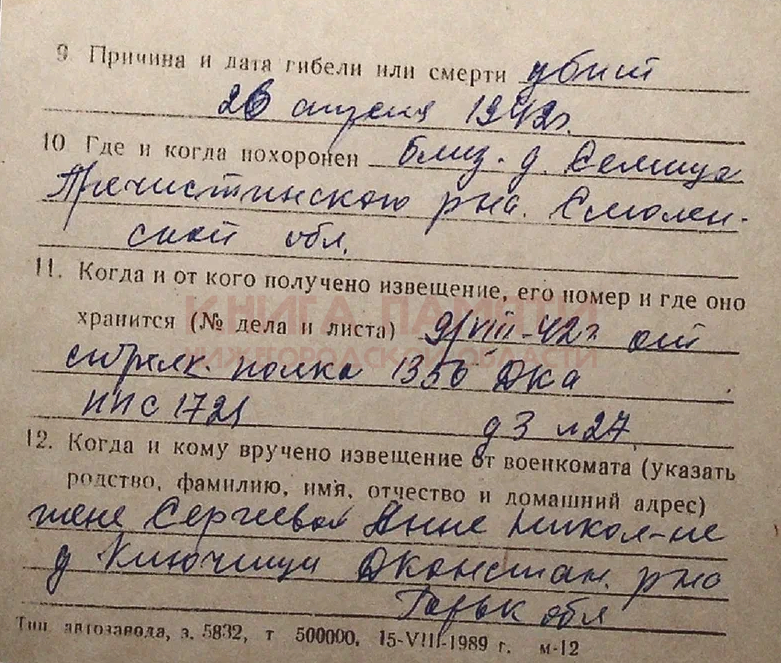 9. Причина и дата гибели или смерти убит
26 апреля 1942г.
10 Где и когда похоронен близ. д. Селища
Пречистинского р-на. Смолен-
ской обл.
11. Когда и от кого получено извещение, его номер и где оно
хранится (№ дела и листа) 9/VIII-42г от
стрелк. полка 1356
ппс 1721 д 3 л 27
12. Когда и кому вручено извещение от военкомата (указать
родство, фамилию, имя, отчество и домашний адрес)
жене Сергеевой Анне Никол-не
д Ключищи Дконстан. р-на
Горьк обл
Тип. автозавода, з. 5832, т 500000, 15-VIII-1989 г. м-12
КНИГА ПАМЯТИ
НИЖЕГОРОДСКОЙ ОБЛАСТИ